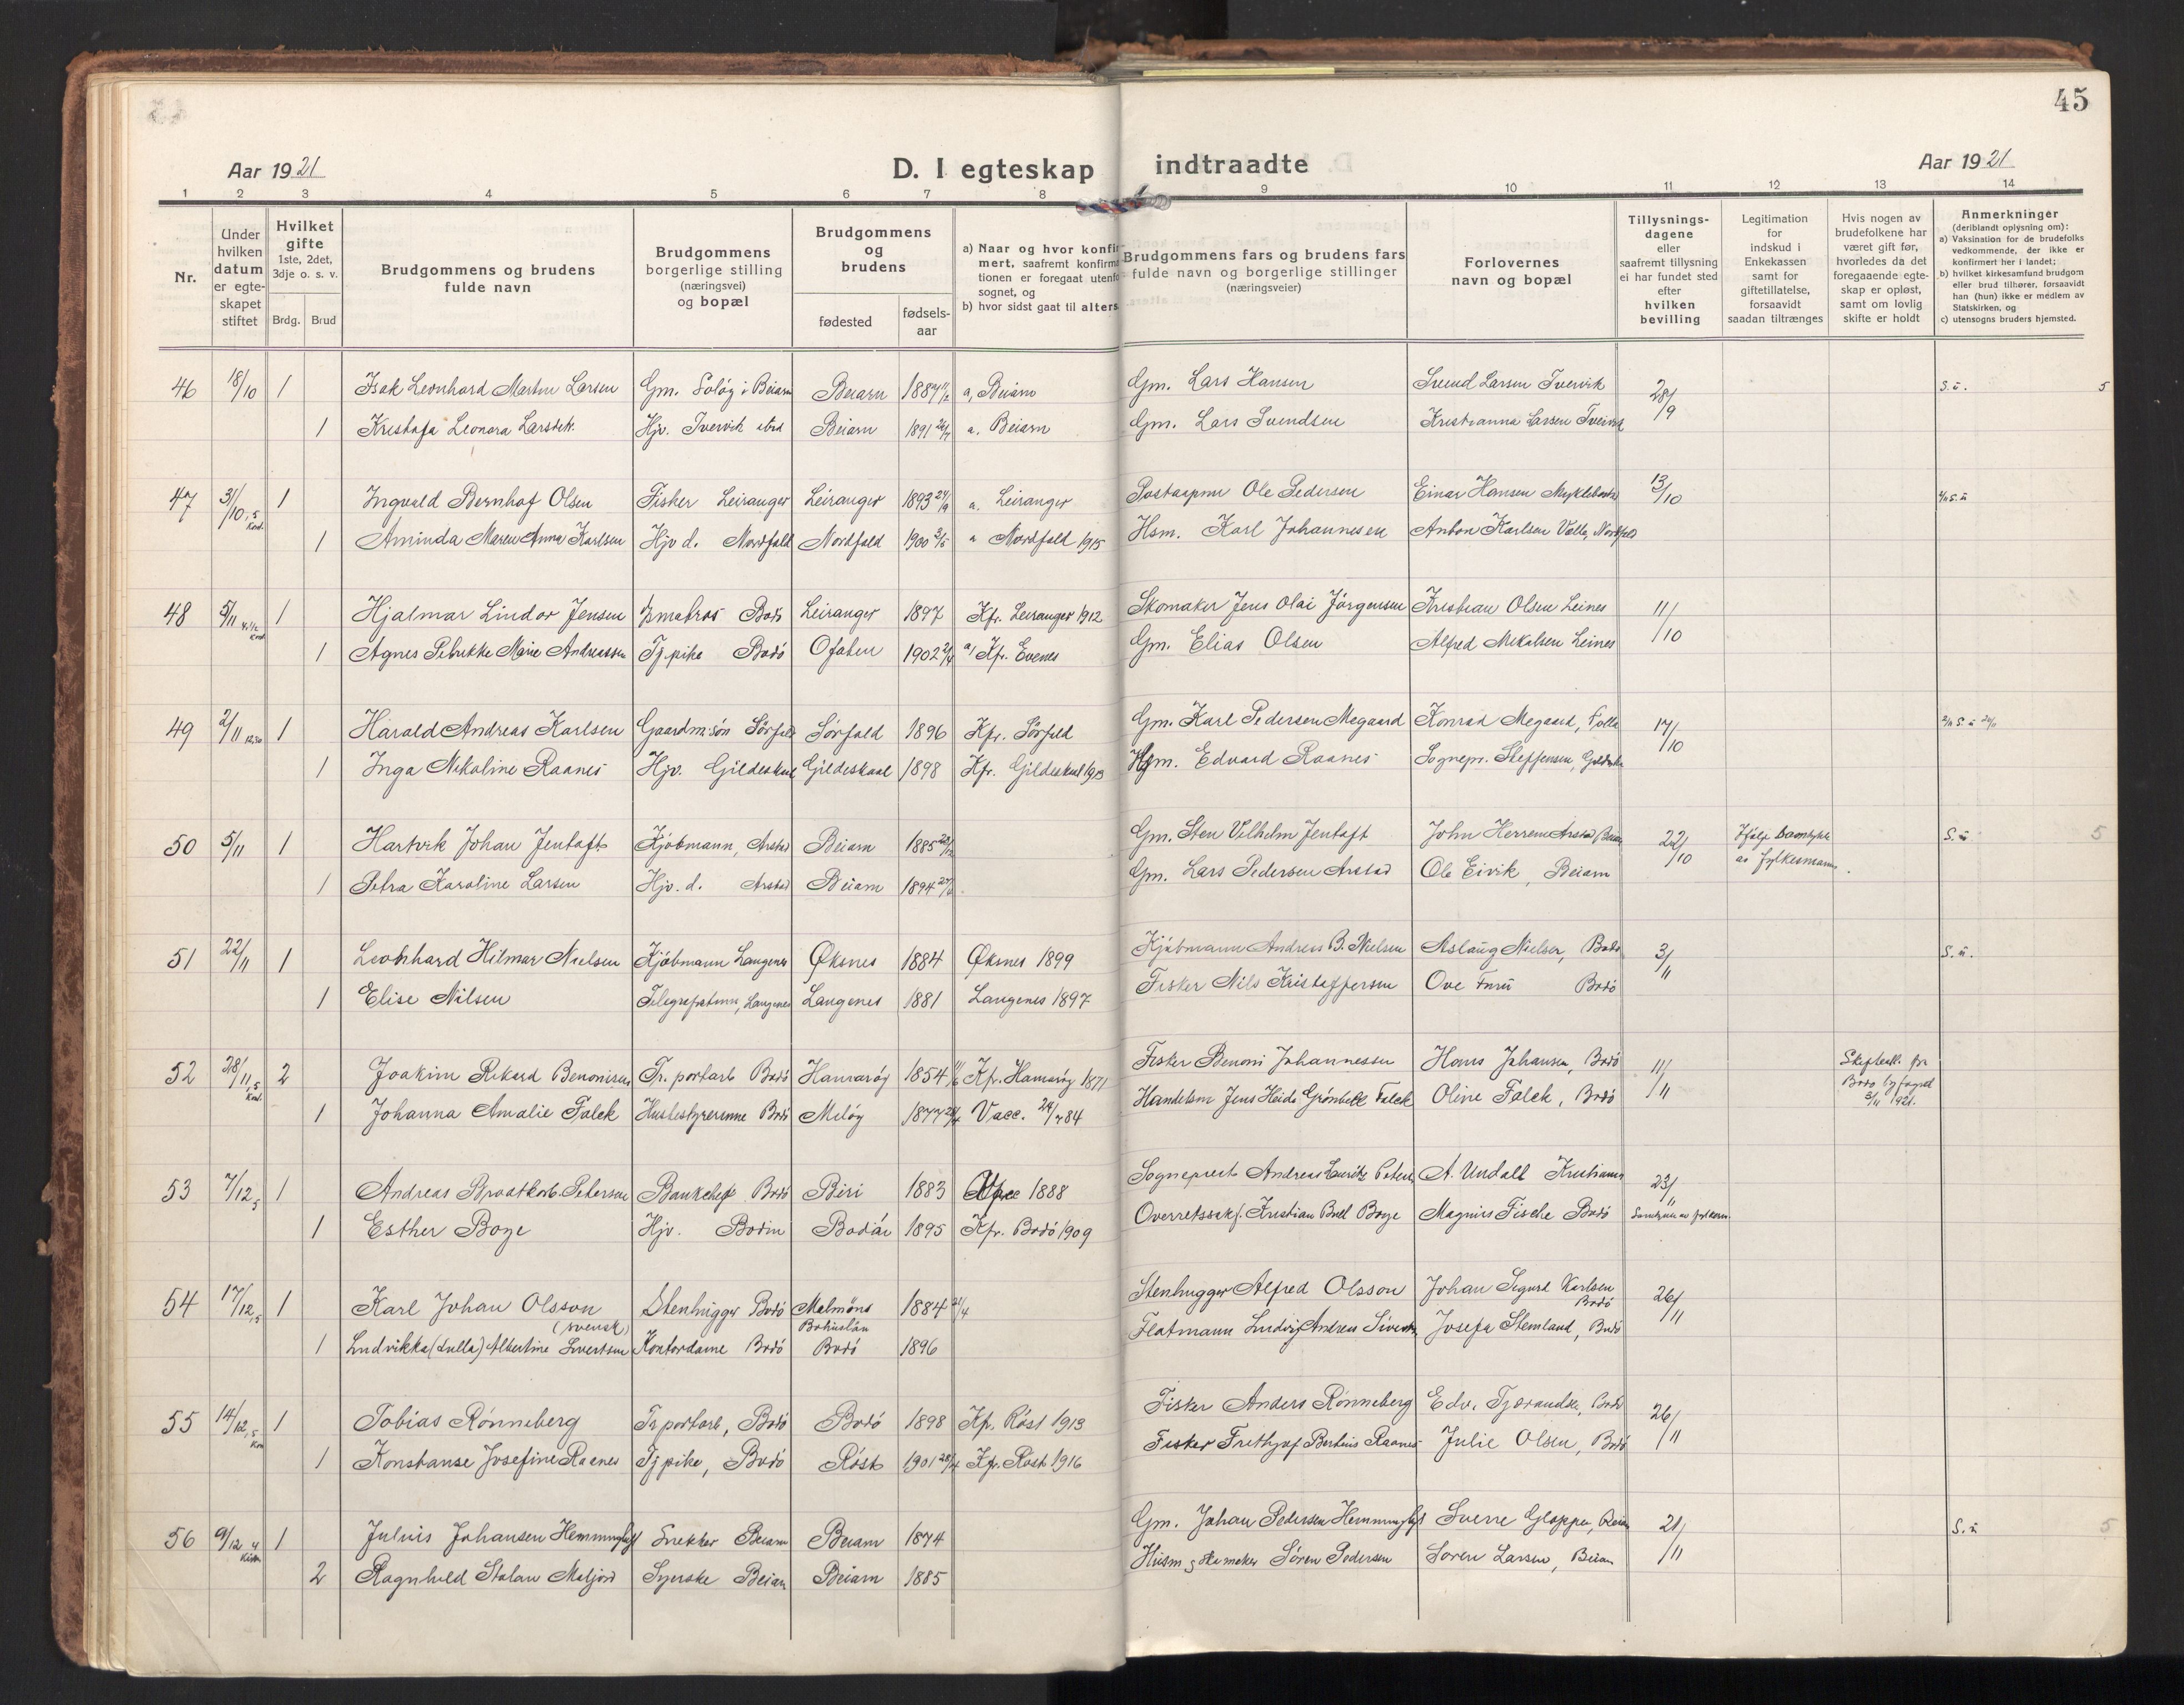 45
Aar 1921 D. I egteskap indtraadte Aar 1921
1 2 3 4 5 6 7 8 9 10 11 12 13 14
Nr.
Under hvilken datum er egteskapet stiftet
Hvilket gifte 1ste, 2det, 3dje o. s. v.
Brdg. Brud
Brudgommens og brudens fulde navn
Brudgommens borgerlige stilling (næringsvei) og bopæl
Brudgommens og brudens
fødested fødsels-aar
a) Naar og hvor konfir-
mert, saafremt konfirma
tionen er foregaat utenfo
sognet, og
b) hvor sidst gaat til alters.
Brudgommens fars og brudens fars
fulde navn og borgerlige stillinger
(næringsveier)
Forlovernes
navn og bopæl
Tillysnings-
dagene
eller
saafremt tillysning
ei har fundet sted
efter
hvilken
bevilling
Legitimation
for
indskud i
Enkekassen
samt for
giftetillatelse,
forsaavidt
saadan tiltrænges
Hvis nogen av
brudefolkene har
været gift før,
hvorledes da det
foregaaende egte-
skap er opløst,
samt om lovlig
skifte er holdt
Anmerkninger
(deriblandt oplysning om):
a) Vaksination for de brudefolks
vedkommende, der ikke er
konfirmert her i landet;
b) hvilket kirkesamfund brudgom
eller brud tilhører, forsaavidt
han (hun) ikke er medlem av
Statskirken, og
c) utensogns bruders hjemsted.
46 18/10 1 Isak Leonhard Martin Larsen Gm. Soløy i Beiarn Beiarn 1887 a, Beiarn Gm. Lars Hansen Svend Larsen Tvervik 28/9 S. ü. 5
1 Kristofa Leonora Larsdtr. Hjv. Tvervik ibid Beiarn 1891 a. Beiarn Gm. Lars Svendsen Kristianna Larsen Tvervik
47 31/10, 5 1 Ingvald Bernhof Olsen Fisker Leiranger Leiranger 1893 24/9 a. Leiranger Postaapner Ole Pedersen Einar Hansen Myklebostad 13/10
1 Aminda Maren Anna Karlsen Hjv d. Nordfold Nordfold 1900 2/5 a Nordfold 1915 Hsm. Karl Johannesen Anton Karlsen Valle, Nordfold
48 5/11 1 Hjalmar Lindor Jensen Bodö Leiranger 1897 Kfr. Leiranger 1912 Skomaker Jens Olai Jörgensen Kristian Olsen Leines 11/10
1 Agnes Petrikke Marie Andreassen Tj.pike Bodö Ofoten 1902 2/4 a/ Kfr. Evenes Gm. Elias Olsen Alfred Mikalsen Leines
49 2/11 12.30 1 Harald Andreas Karlsen Gaardm.sön Sörfold Sörfold 1896 Kfr. Sörfold Gm. Karl Pedersen Megaard Konrad Megaard, Folla 17/10
1 Inga Nikoline Raanes Hjv. Gildeskaal Gildeskaal 1898 Kfr. Gildeskaal 1913 Hsm. Edvard Raanes Sognepr. Steffensen, Gildeskaal
50 5/11 1 Hartvik Johan Jentoft Kjöbmann, Arstad Beiarn 1885 Gm. Sten Vilhelm Jentoft John Herrem Arstad Beiarn 22/10 Ifølge Samtykke S. ü 5
1 Petra Karoline Larsen Hjv. d. Arstad Beiarn 1894 Gm. Lars Pedersen Arstad Ole Eivik, Beiarn av fylkesmann.
51 22/11 1 Leonhard Hilmar Nielsen Kjöbmann Langenes Øksnes 1884 Øksnes 1899 Kjöbmann Andreas B. Nielsen Aslaug Nielsen, Bodö 3/11 S. ü.
1 Elise Nilsen Langenes Langenes 1881 Langenes 1897 Fisker Nils Kristoffersen Ove Furü Bodö
52 28/11, 5 2 Joakim Rikard Benonisen Tr. portarb Bodö Hamaröy 1854 Kfr. Hamaröy 1871 Fisker Benoni Johannessen Hans Johansen, Bodö 11/11 Skifteatt. fra
1 Johanna Amalie Falck Husbestyrerinne Bodö Melöy 1877 Vacc. 24/7 84 Handelsm Jens Heide Grönbech Falck Oline Falck, Bodö Bodö byfoged 5/11 1921.
53 7/12, 5 1 Andreas Brodtkorb Petersen Bankchef Bodö Biri 1883 1888 Sogneprest Andreas Lauritz Petersen A. Undall Kristiania 23/11
1 Esther Boye Hjv. Bodin Bodin 1895 Kfr. Bodö 1909 Overretssakf. Kristian Bull Boye Magnus Fische Bodö
54 17/12, 5 1 Karl Johan Olsson (svensk) Stenhugger Bodö Malmöns Bohuslän 1884 21/4 Stenhugger Alfred Olsson Johan Sigurd Karlsen Bodö 26/11
1 Ludvikka (Lulla) Albertine Sivertsen Kontordame Bodö Bodö 1896 Flatmann Ludvig Andreas Sivertsen Josefa Stemland, Bodö
55 14/12, 5 1 Tobias Rönneberg Tr portarb, Bodö Bodö 1898 Kfr. Röst 1913 Fisker Anders Rönneberg Edv. Tjærandsen, Bodö 26/11
1 Konstanse Josefine Raanes Tj pike, Bodö Röst 1901 28/4 Kfr. Röst 1916 Fisker Frithjof Bertinus Raanes Julie Olsen, Bodö
56 9/12 4 1 Julius Johansen Hemminghyt Snekker Beiarn Beiarn 1874 Gm. Johan Pedersen Hemminghyt Sverre Gloppen, Beiarn 21/11 S. ü 5
2 Ragnhild Stalau Moljord Syerske Beiarn Beiarn 1885 Husm. & skomaker Sören Pedersen Sören Larsen, Beiarn